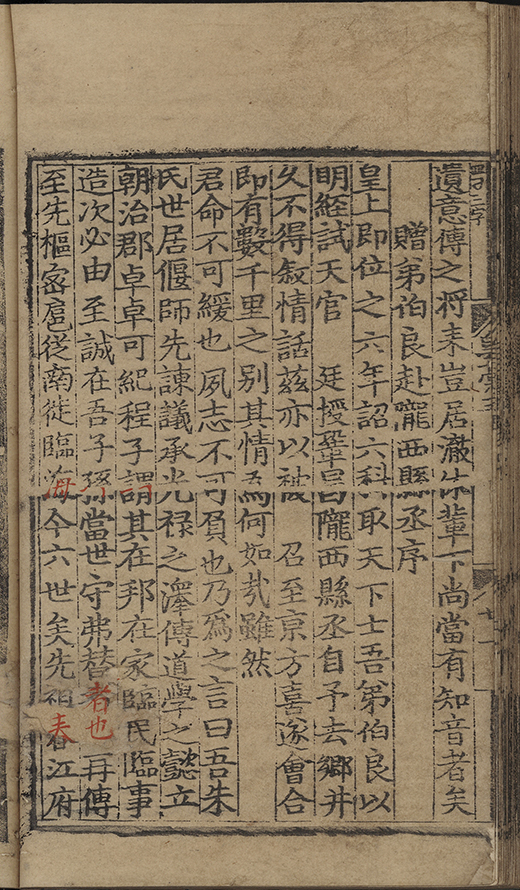 遺意傳之将來豈居澈
軰下尚當有知音者矣
贈弟伯良赴隴西縣丞序
皇上即位之六年詔六科取天下士吾弟伯良以
明經試天官 廷授鞏昌隴西縣丞自予去鄉井
久不得叙情話茲亦以被 召至京方喜遂會合
即有數千里之别其情為何如㢤雖然
君命不可緩也夙志不可負也乃為之言曰吾朱
氏世居偃師先諫議承光禄之澤傳道學之懿立
朝治郡卓卓可紀程子謂其在邦在家臨民臨事
造次必由至誠在吾子孫當世守弗替者也再傳
至先樞宻扈從南徙臨海今六世矣先祖春江府